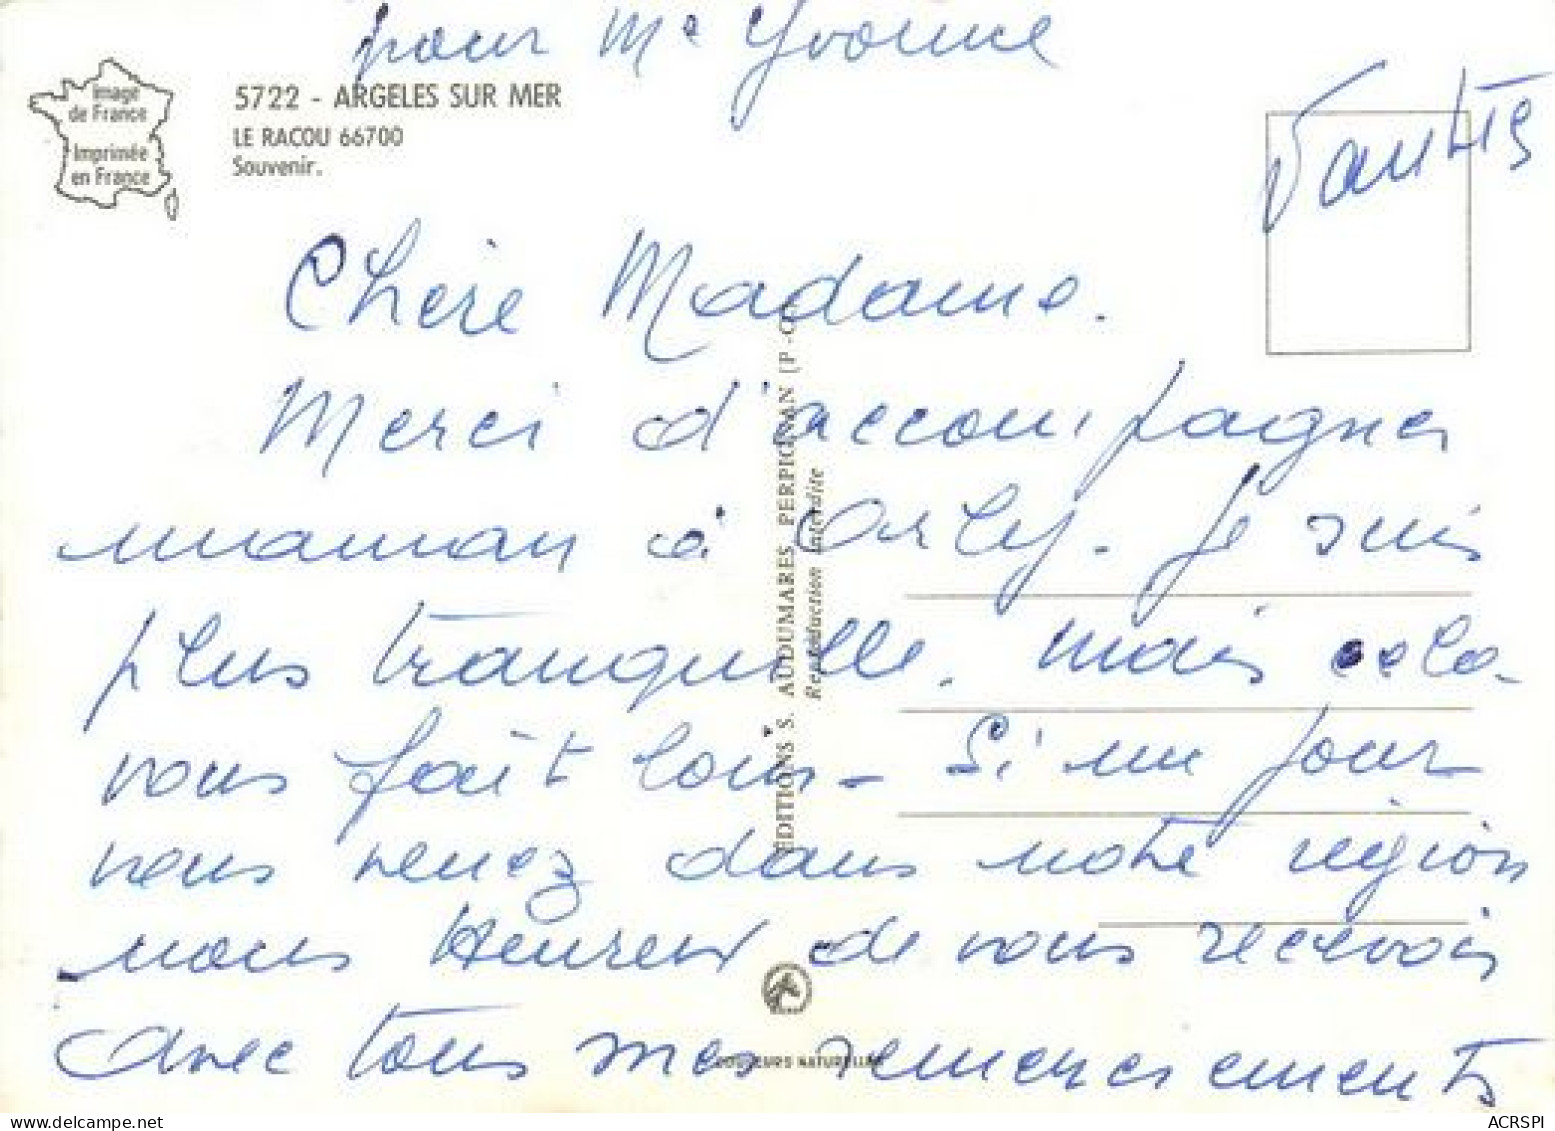 pour Me Yvonne
Image
de France
Imprimée
en France
5722 - ARGELES SUR MER
LE RACOU 66700
Souvenir.
Chère Madame.
Merci d'accompagner
maman à Orly. Je suis
plus tranquille. mais cela
vous fait loin - Si un jour
vous venez dans notre région
nous Heureux de vous recevoir
avec tous mes remerciements
EDITIONS S. AUDUMARES PERPIGNAN (P.-O
Reproduction interdite
COULEURS NATURELLES
ACRSPI